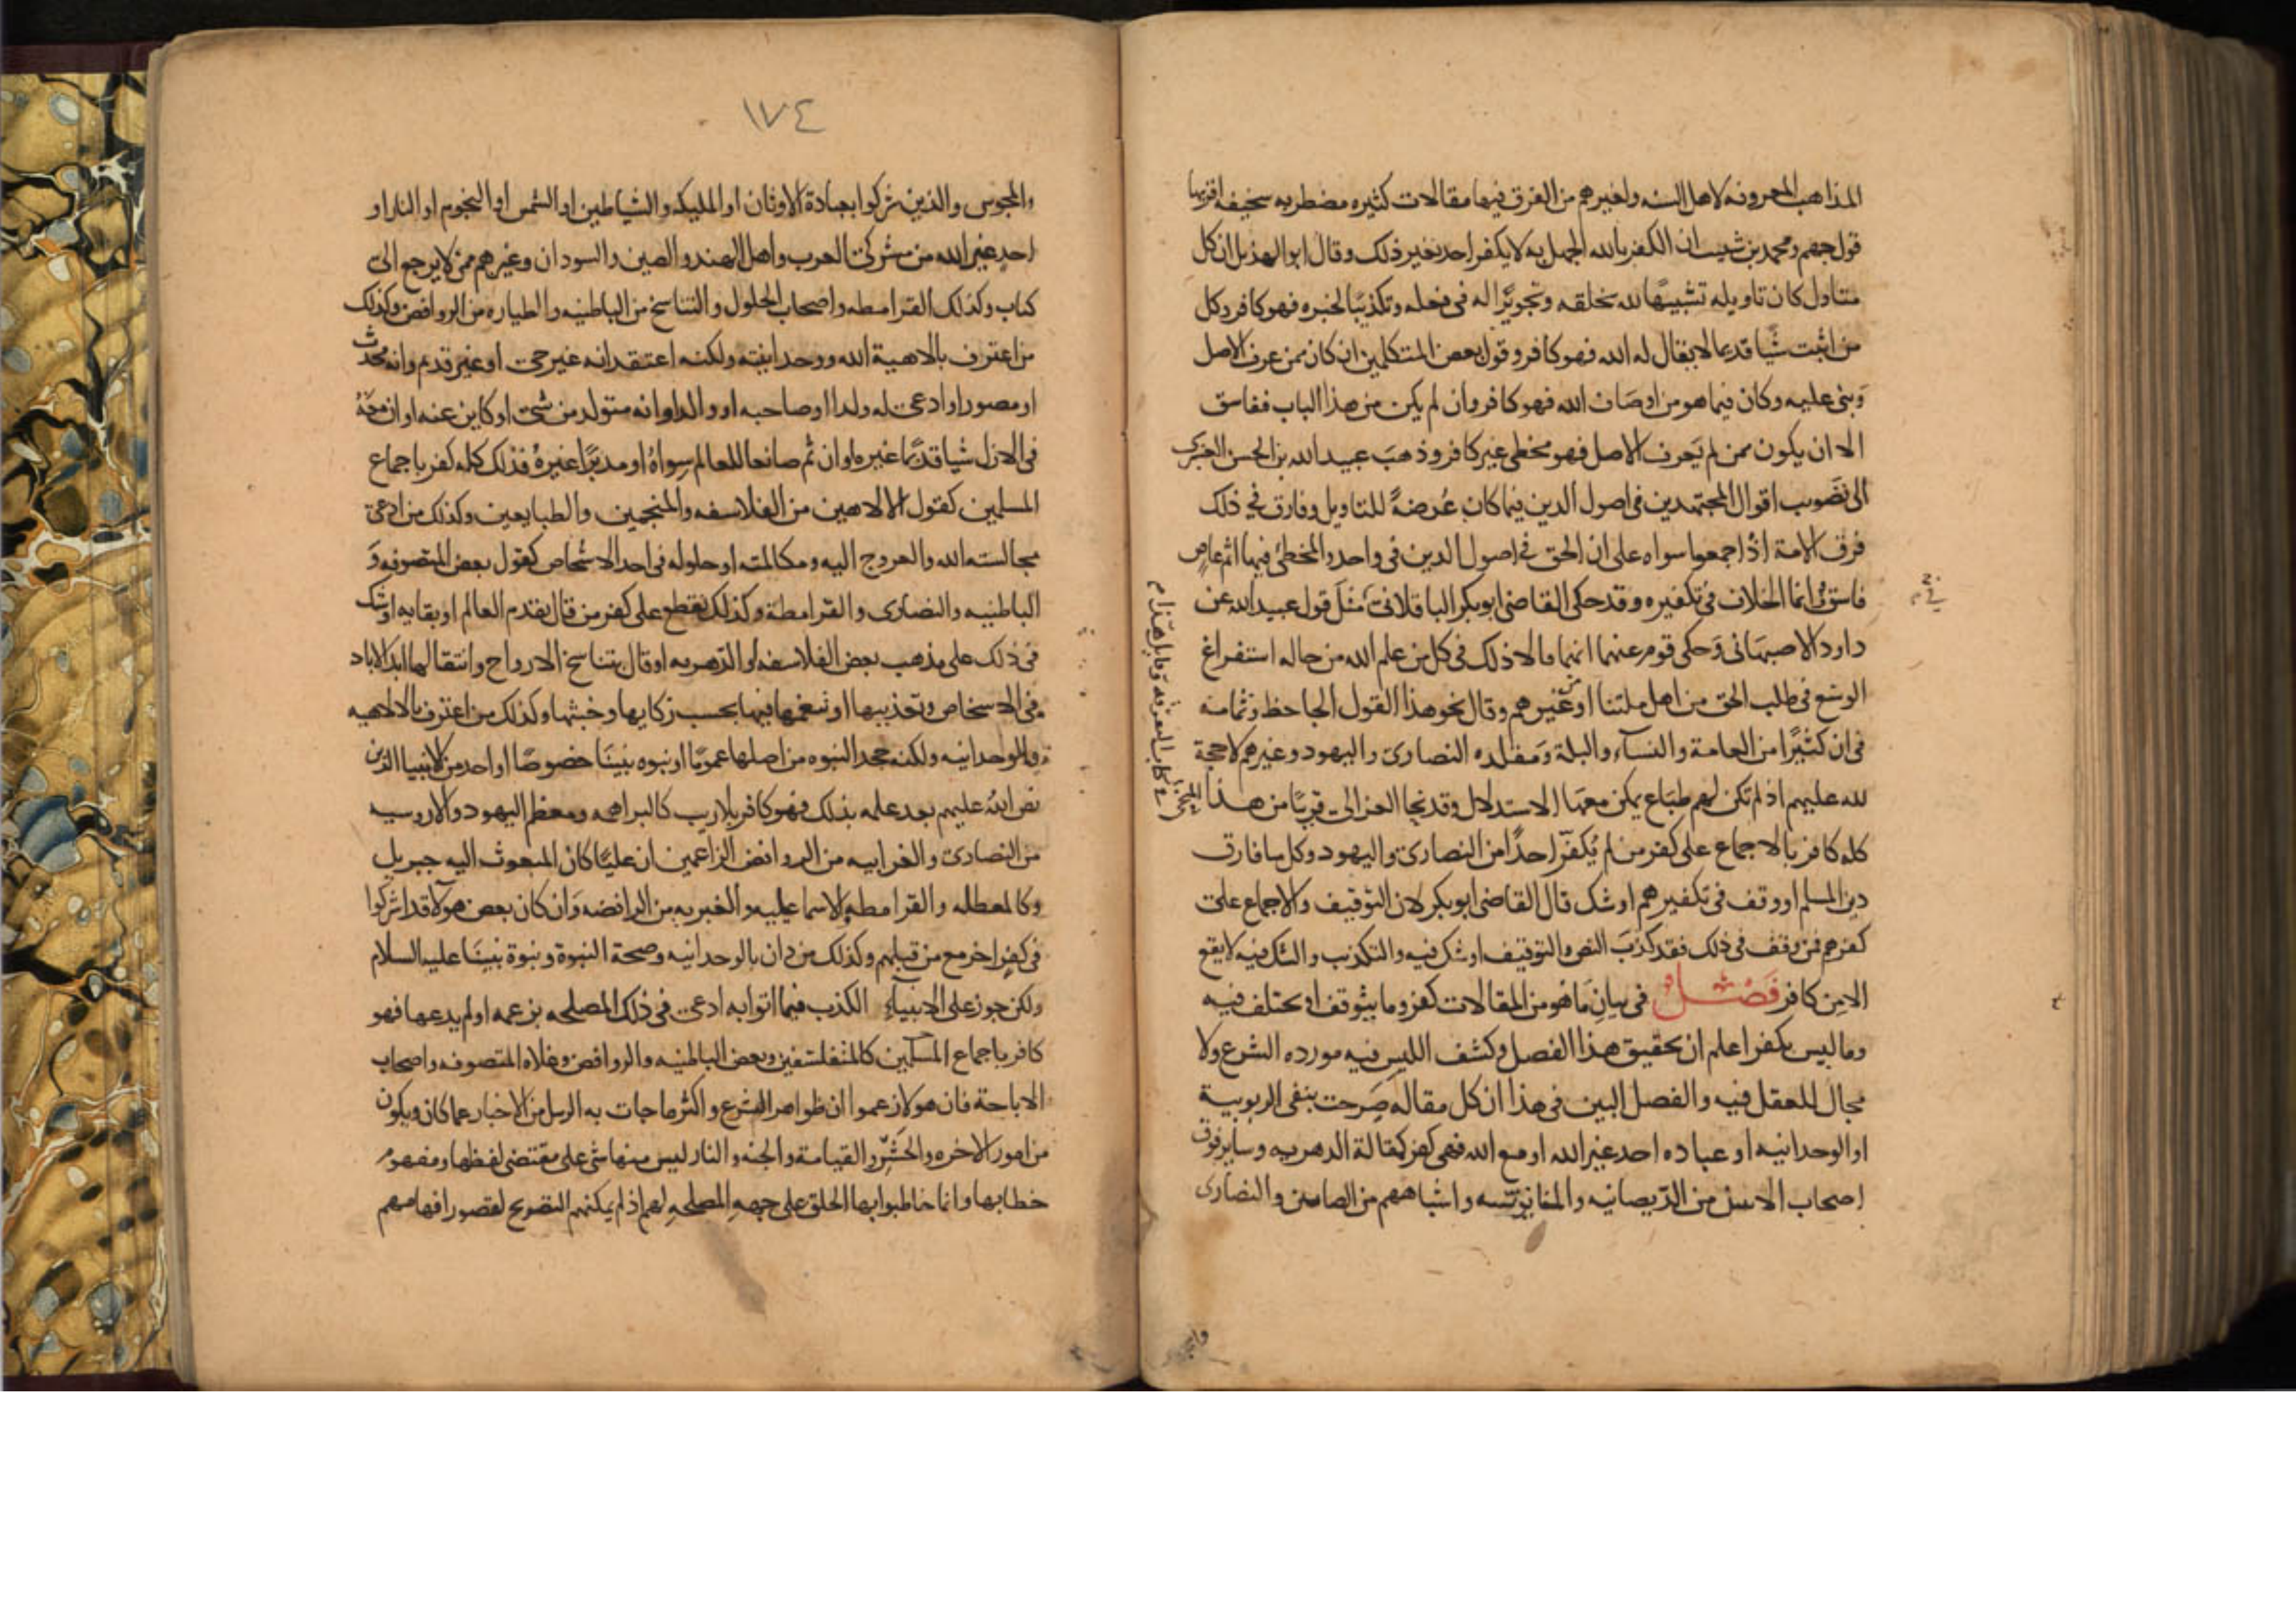 المذاهب المعروفه لاهل السنه ولغيرهم من الفرق فيها مقالات كثيره مضطربه سخيفه اقربها
قول جهم ومحمد بن شبيب ان الكفر بالله الجهل به لا يكفر احد بغير ذلك وقال ابو الهذيل ان كل
متاول كان تاويله تشبيهًا لله بخلقه وتجويرًا له في فعله وتكذيبًا لخبره فهو كافر وكل
من اثبت شيًا قديما لا يقال له الله فهو كافر وقول بعض المتكلمين ان كان ممن عرف الاصل
وبنى عليه وكان فيما هو من اوصاف الله فهو كافر وان لم يكن من هذا الباب ففاسق
الا ان يكون ممن لم يَعرف الاصل فهو مخطي غير كافر وذهبَ عبيد الله بن الحسن العنبرى
الى تصويب اقوال المجتهدين في اصول الدين فيما كان عُرضةً للتاويل وفارق في ذلك
فرق الامة اذ اجمعوا سواه على ان الحق في اصول الدين في واحد والمخطئ فيها اثم عاصٍ
فاسق وانما الخلاف في تكفيره وقد حكى القاضى ابو بكر الباقلانى مثلَ قول عبيد الله عن
داود الاصبهانى وَحكى قوم عنهما انهما قالا ذلك في كل من علم الله من حاله استفراغ
الوسْع في طلب الحق من اهل ملتنا او من غيرهم وقال نحو هذا القول الجاحظ وثمامة
في ان كثيرًا من العامة والنسآء والبلة وَمقلده النصارى واليهود وغيرهم لا حجة
لله عليهم اذ لم تكن لهم طبَاع يمكن معها الاستدلال وقد نحا الغزالى قريبًا من هذا
كله كافر بالاجماع على كفر من لم يُكفّر احدًا من النصارى واليهود وكل من فارق
دين المسلم او وقف في تكفيرهم او شك قال القاضى ابو بكر لان التوقيف والاجماع على
كفرهم فمن وقف في ذلك فقد كذبَ النص والتوقيف او شك فيه والتكذيب والشك فيه لا يقع
الا من كافر فصْل في بيانِ مَا هو من المقالات كفر وما يتوقف او يختلف فيه
وما ليس بكفر اعلم ان تحقيق هذا الفصل وكشف اللبس فيه مورده الشرع ولا
مجال للعقل فيه والفصل البين في هذا ان كل مقاله صَرحت بنفى الربوبية
او الوحدانيه او عباده احد غير الله او مع الله فهى كفر كمقالة الدهريه وساير فرق
اصحاب الاثنين من الدّيصانيه والمانويه واشباههم من الصابين والنصارى
في كتاب التفرقه وقايل هذا
١٧٤
والمجوس والذين شركوا بعبادة الاوثان او المليكه والشياطين او الشمس او النجوم او النار او
احد غير الله من مشركى العرب واهل الهند والصين والسودان وغيرهم ممن لا يرجع الى
كتاب وكذلك القرامطه واصحاب الحلول والتناسخ من الباطنيه والطياره من الروافض وكذلك
من اعترف بالاهية الله ووحدانيته ولكنه اعتقد انه غير حى او غير قديم وانه محدث
او مصور او ادعى له ولدا او صاحبه او والدا او انه متولد من شى او كاين عنه او ان معَهُ
في الازل شيا قديما غيره او ان ثم صانعا للعالم سواهُ او مدبرًا غيرهُ فذلك كله كفر باجماع
المسلمين كقول الالاهيين من الفلاسفه والمنجمين والطبايعين وكذلك من ادعى
مجالسته الله والعروج اليه ومكالمته او حلوله في احد الاشخاص كقول بعض المتصوفه وَ
الباطنيه والنصارى والقرامطة وكذلك نقطع على كفر من قال بقدم العالم او بقايه او شك
في ذلك على مذهب بعض الفلاسفه او الدهريه او قال بتناسخ الارواح وانتقالها ابد الاباد
في الاشخاص وتعذيبها او تنعمها فيها بحسب زكايها وخبثها وكذلك من اعترف بالالاهيه
والوحدانيه ولكنه جحد النبوه من اصلها عمومًا او نبوه نبينَا خصوصًا او احد من الانبيا الذين
نص اللهُ عليهم بعد علمه بذلك فهو كافر بلا ريب كالبراهمه ومعظم اليهود والاروسيه
من النصارى والغرابيه من الروافض الزاعمين ان عليًا كان المبعوث اليه جبريل
وكالمعطله والقرامطه والاسماعيليه والعنبريه من الرافضه وَان كان بعض هولآ قد اشركوا
في كفرٍ اخر مع من قبلهم وكذلك من دان بالوحدانيه وصحة النبوة ونبوة نبينَا عليه السلام
ولكن جوز على الانبياءِ الكذب فيما اتوا به ادعى في ذلك المصلحه بزعمه او لم يدعها فهو
كافر باجماع المسلمين كالمتفلسفين وبعض الباطنيه والروافض وغلاه المتصوفه واصحاب
الاباحة فان هولا زعموا ان ظواهر الشرع واكثر ما جات به الرسل من الاخبار عما كان ويكون
من امور الاخره والحَشْرِ والقيامة والجنه والنار ليس منها شى على مقتضى لفظها ومفهوم
خطابها وانما خاطبوا بها الخلق على جهةِ المصلحةِ لهم اذ لم يمكنهم التصريح لقصور افهامهم